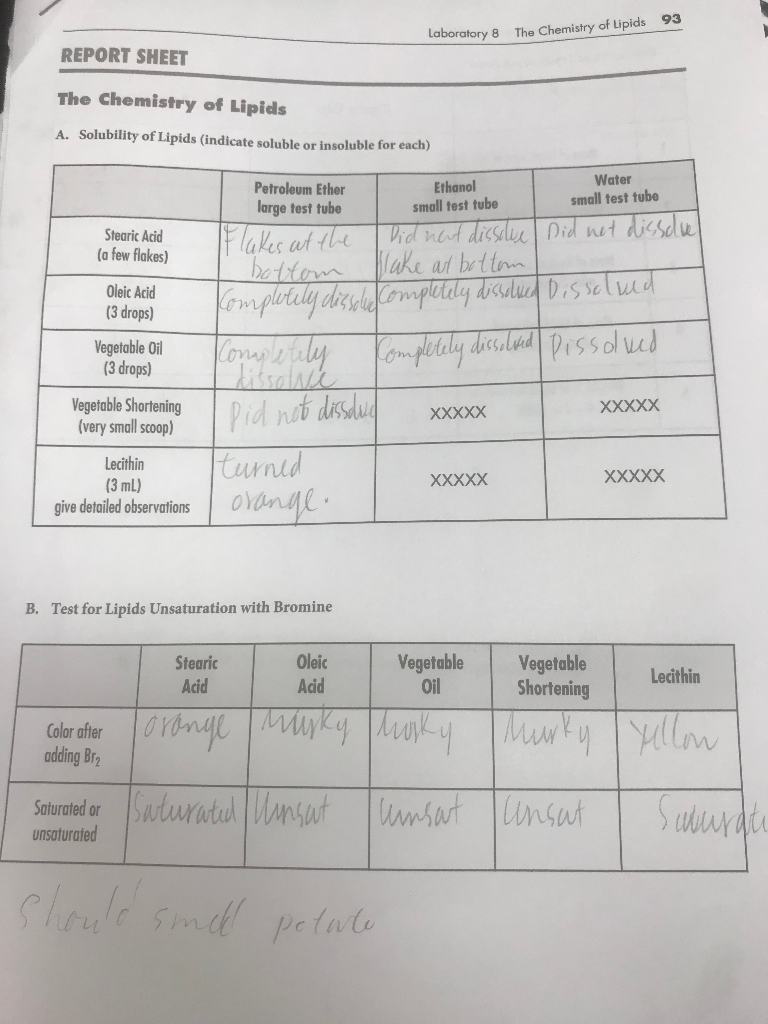 Laboratory 8 The Chemistry of Lipids 93
REPORT SHEET
The Chemistry of Lipids
A. Solubility of Lipids (indicate soluble or insoluble for each)
Petroleum Ether
large test tube
Ethanol
small test tube
Water
small test tube
Stearic Acid
(a few flakes)
Flakes at the
bottom
Did not dissolve
flake at bottom
Did not dissolve
Oleic Acid
(3 drops)
Completely dissolve
Completely dissolved
Dissolved
Vegetable Oil
(3 drops)
Completely
dissolve
Completely dissolved
Dissolved
Vegetable Shortening
(very small scoop)
Did not dissolve
XXXXX
XXXXX
Lecithin
(3 mL)
give detailed observations
turned
orange.
XXXXX
XXXXX
B. Test for Lipids Unsaturation with Bromine
Stearic
Acid
Oleic
Acid
Vegetable
Oil
Vegetable
Shortening
Lecithin
Color after
adding Br₂
orange
Murky
Murky
Murky
Yellow
Saturated or
unsaturated
Saturated
Unsat
Unsat
Unsat
Saturate
Should smell